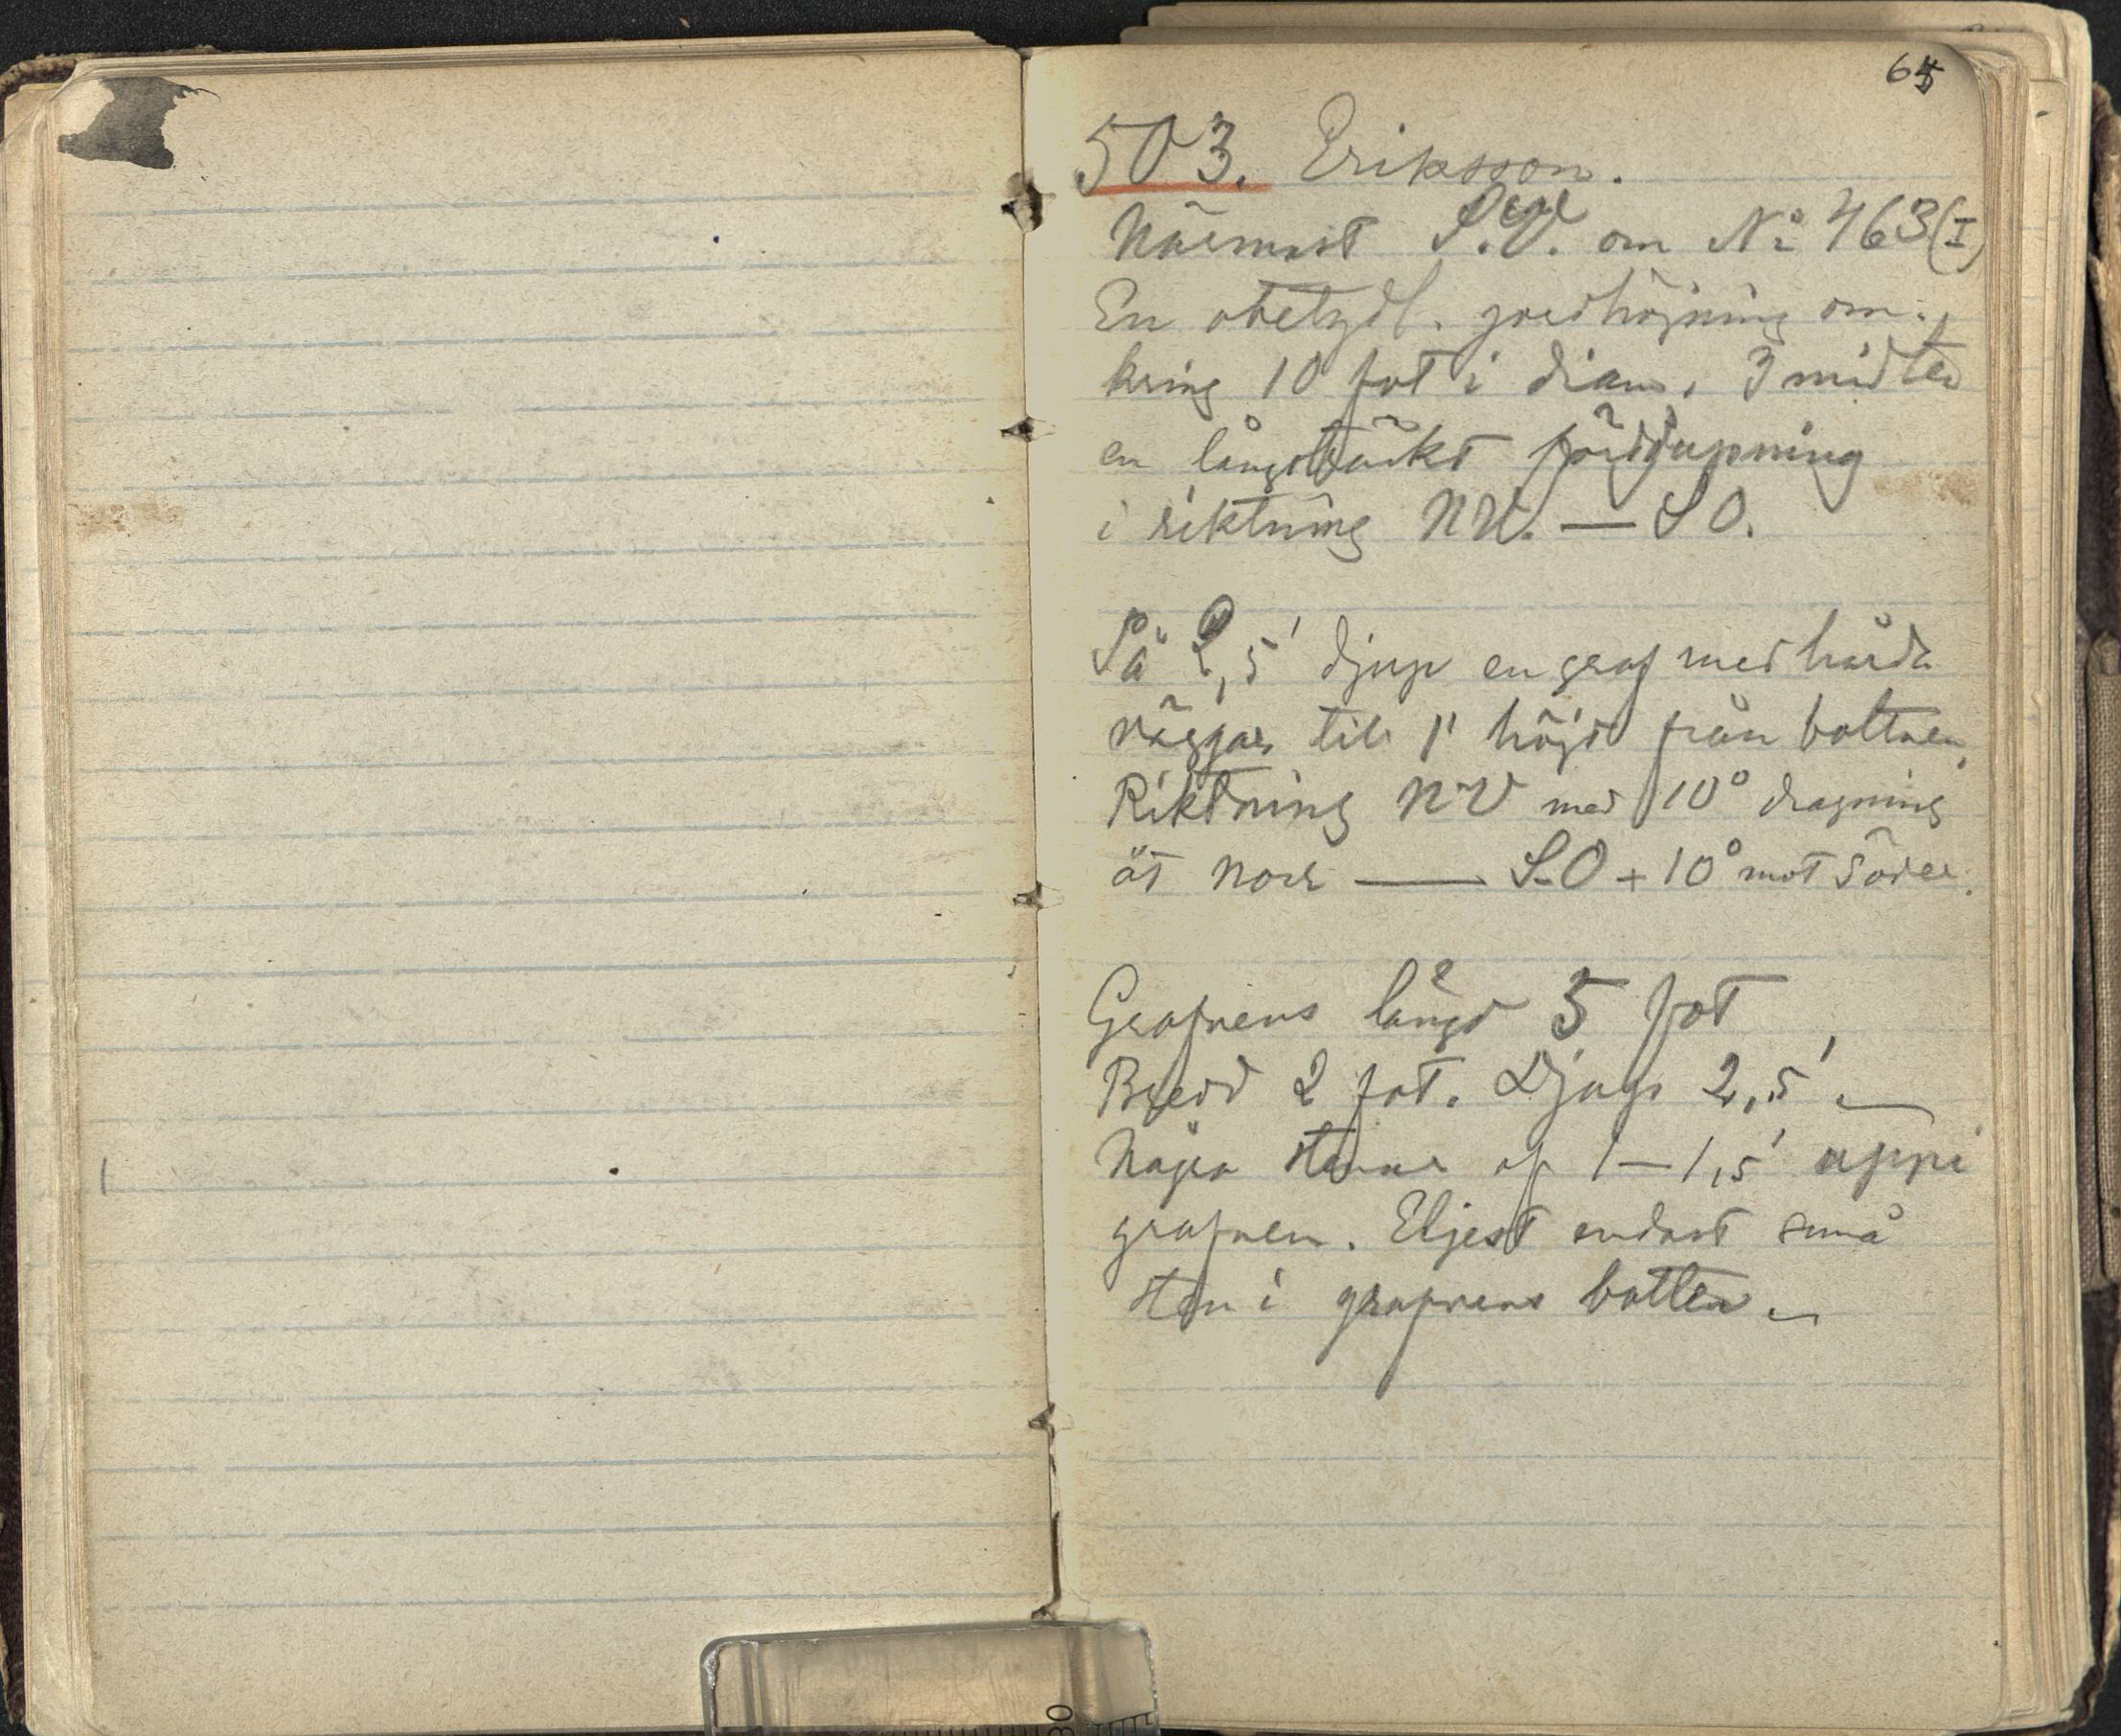 65
503. Eriksson.
Närmast S.V. om No 463 (I)
En obetydl. jordhöjning om-
kring 10 fot i diam. I midten
en långsträckt fördjupning
i riktning NV. — SO.
På 2,5' djup en graf med hårda
väggar till 1' höjd från bottnen.
Riktning NV med 10° dragning
åt norr — S.O + 10° mot Söder.
Grafvens längd 5 fot
Bredd 2 fot. Djup 2,5'
Några stenar af 1—1,5' uppe i
grafven. Eljest endast små
sten i grafvens botten.
30